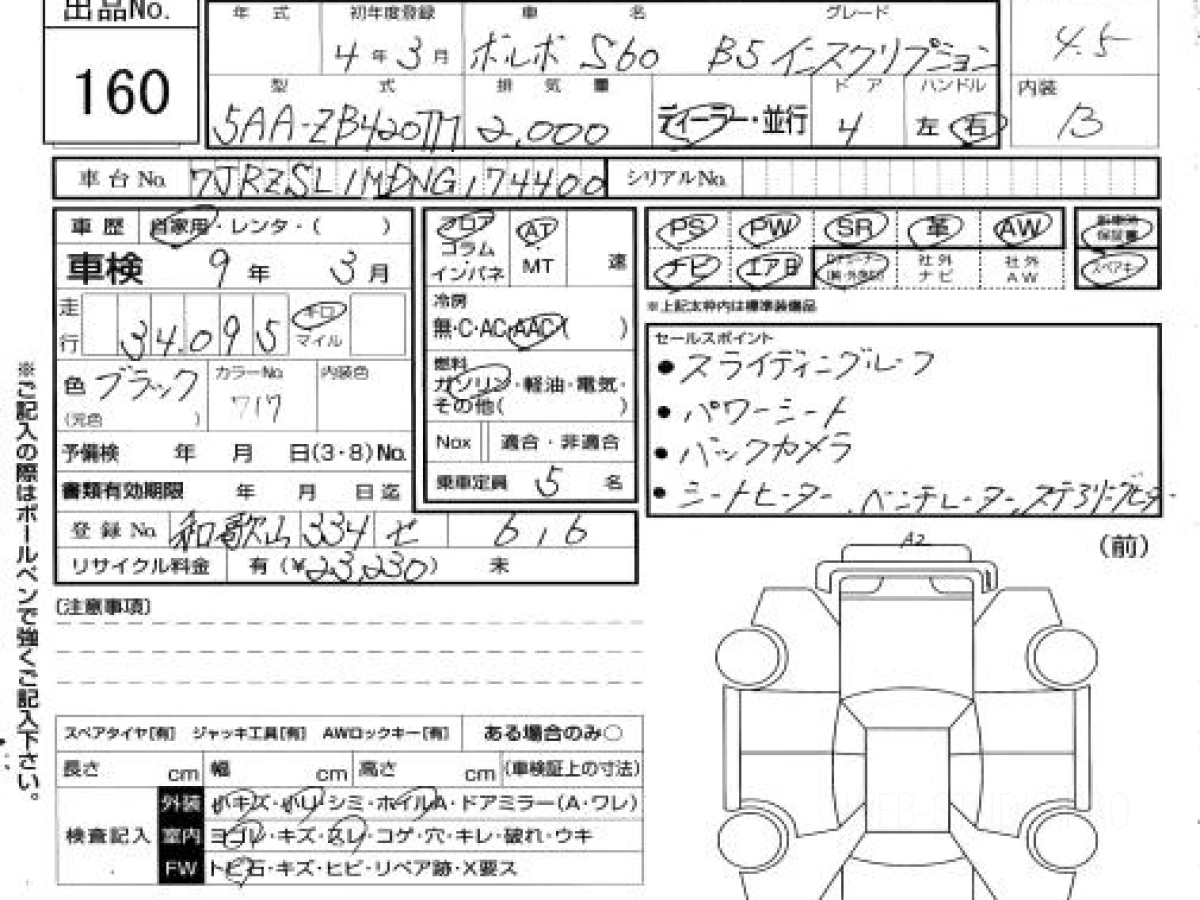 出品No.
160
年式 初年度登録 車名 グレード
4年3月 ボルボ S60 B5 インスクリプション
4.5
型式 排気量 ドア ハンドル 内装
5AA-ZB420TM 2,000 ディーラー・並行 4 左 右 B
車台No. 7JRZSL1MDNG174400 シリアルNo.
車歴 自家用・レンタ・( )
車検 9年 3月
走行 34.095 キロ マイル
色 ブラック カラーNo. 717 内装色
(元色 )
予備検 年 月 日(3・8)No.
書類有効期限 年 月 日迄
登録No. 和歌山 334 せ 616
リサイクル料金 有(¥23,230) 未
フロア コラム インパネ AT MT 速
冷房
無・C・AC・AAC( )
燃料
ガソリン・軽油・電気・
その他( )
Nox 適合・非適合
乗車定員 5 名
PS PW SR 革 AW 新車時保証書
ナビ エアB 社外ナビ 社外AW スペアキー
※上記太枠内は標準装備品
セールスポイント
●スライディングルーフ
●パワーシート
●バックカメラ
●シートヒーター、ベンチレーター、ステアリングヒーター
(注意事項)
A2
(前)
スペアタイヤ[有] ジャッキ工具[有] AWロックキー[有] ある場合のみ○
長さ cm 幅 cm 高さ cm (車検証上の寸法)
検査記入
外装 小キズ・小凹・シミ・ホイルA・ドアミラー(A・ワレ)
室内 ヨゴレ・キズ・スレ・コゲ・穴・キレ・破れ・ウキ
FW トビ石・キズ・ヒビ・リペア跡・X要ス
※ご記入の際はボールペンで強くご記入下さい。